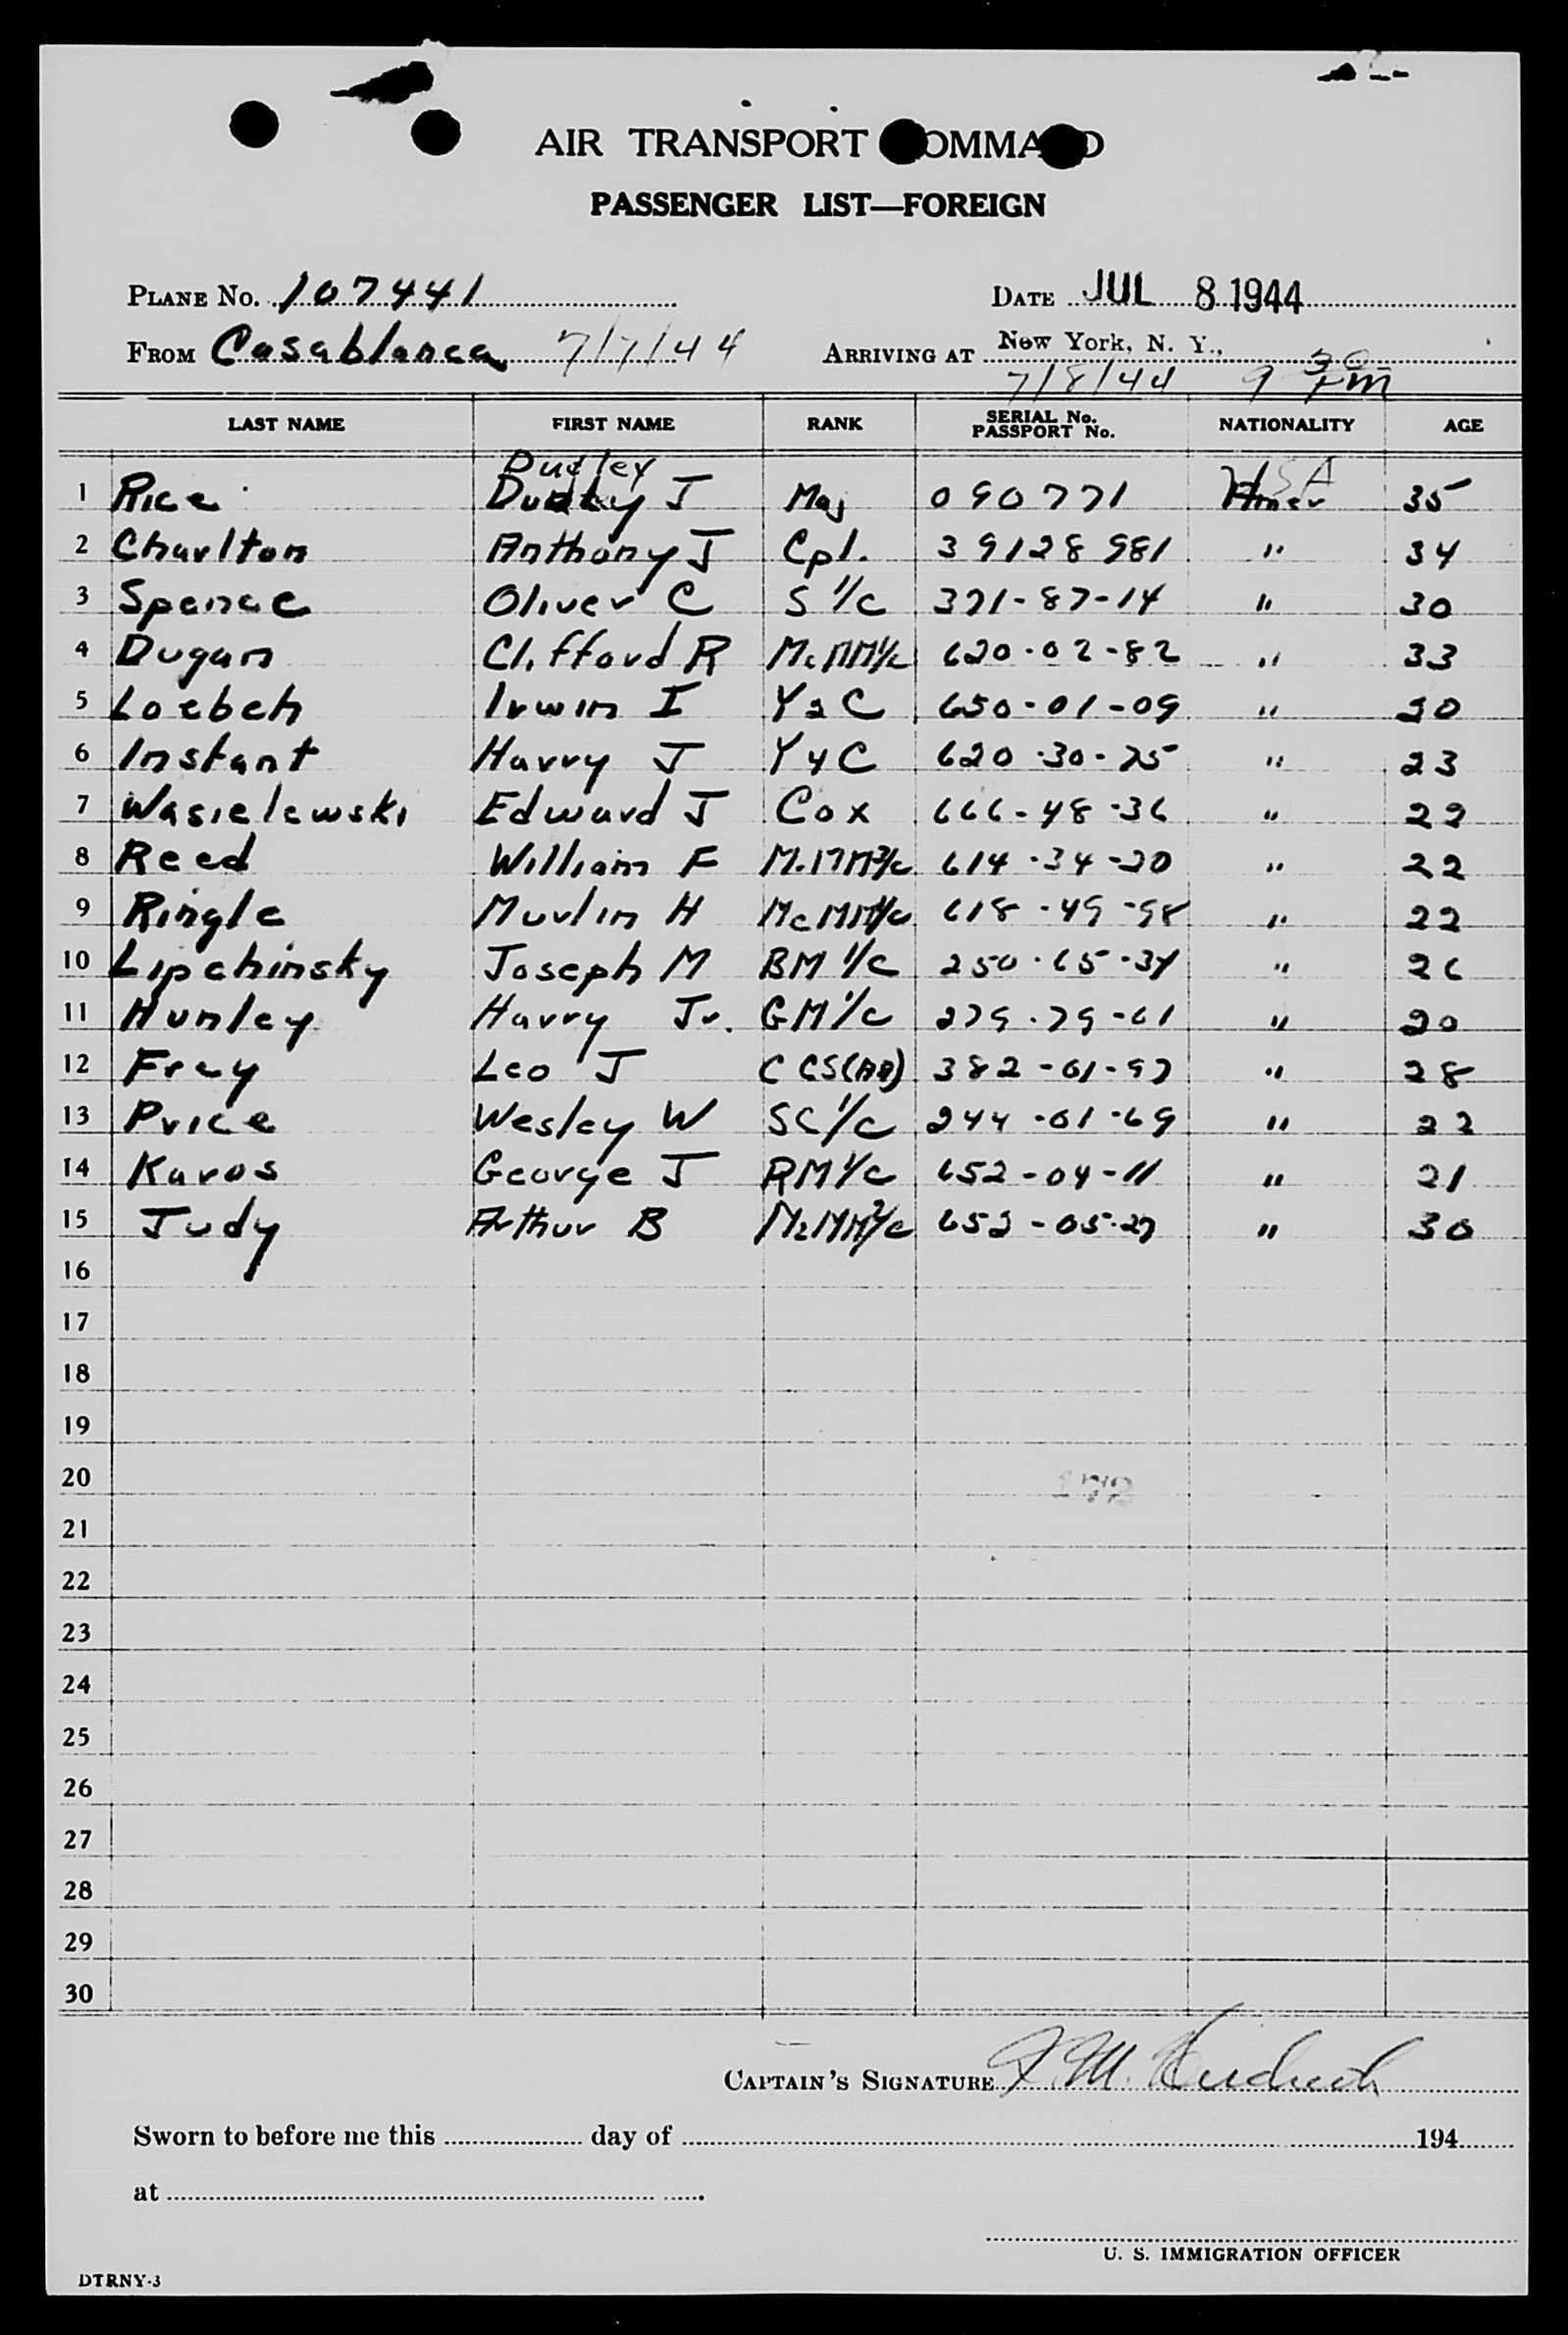 AIR TRANSPORT COMMAND
PASSENGER LIST—FOREIGN
PLANE No. 107441 DATE JUL 8 1944
FROM Casablanca 7/7/44 ARRIVING AT New York, N. Y.,
7/8/44 9 30 PM
LAST NAME FIRST NAME RANK SERIAL No. PASSPORT No. NATIONALITY AGE
Dudley USA
1 Rice J Maj 090771 Amer 35
2 Charlton Anthony J Cpl. 39128981 " 34
3 Spence Oliver C S 1/c 321-87-14 " 30
4 Dugan Clifford R MoMM1/c 620-02-82 " 33
5 Loebch Irwin I Y2C 650-01-09 " 30
6 Instant Harry J Y4C 620-30-75 " 23
7 Wasielewski Edward J Cox 666-48-36 " 22
8 Reed William F M.MM3/c 614-34-20 " 22
9 Ringle Murlin H McMM1/c 618-49-98 " 22
10 Lipchinsky Joseph M BM 1/c 250-65-34 " 26
11 Hunley Harry Jr. GM1/c 279-79-61 " 20
12 Frey Leo J CCS(AA) 382-01-97 " 28
13 Price Wesley W SC1/c 244-01-69 " 22
14 Karos George J RM1/c 652-04-11 " 21
15 Judy Arthur B MoMM2/c 652-05-27 " 30
16
17
18
19
20
21
22
23
24
25
26
27
28
29
30
CAPTAIN'S SIGNATURE
Sworn to before me this day of 194
at .
U. S. IMMIGRATION OFFICER
DTRNY-3